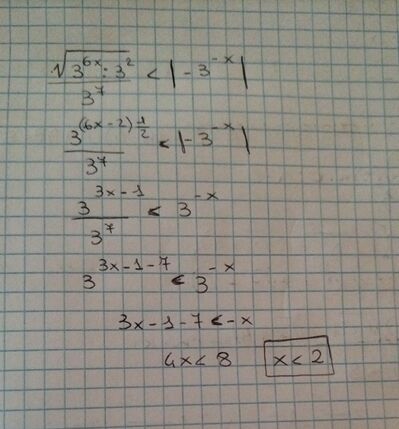 √(3^(6x) : 3^2) / 3^7 < |-3^(-x)|
3^((6x-2)1/2) / 3^7 < |-3^(-x)|
3^(3x-1) / 3^7 < 3^(-x)
3^(3x-1-7) < 3^(-x)
3x-1-7 < -x
4x < 8 x < 2